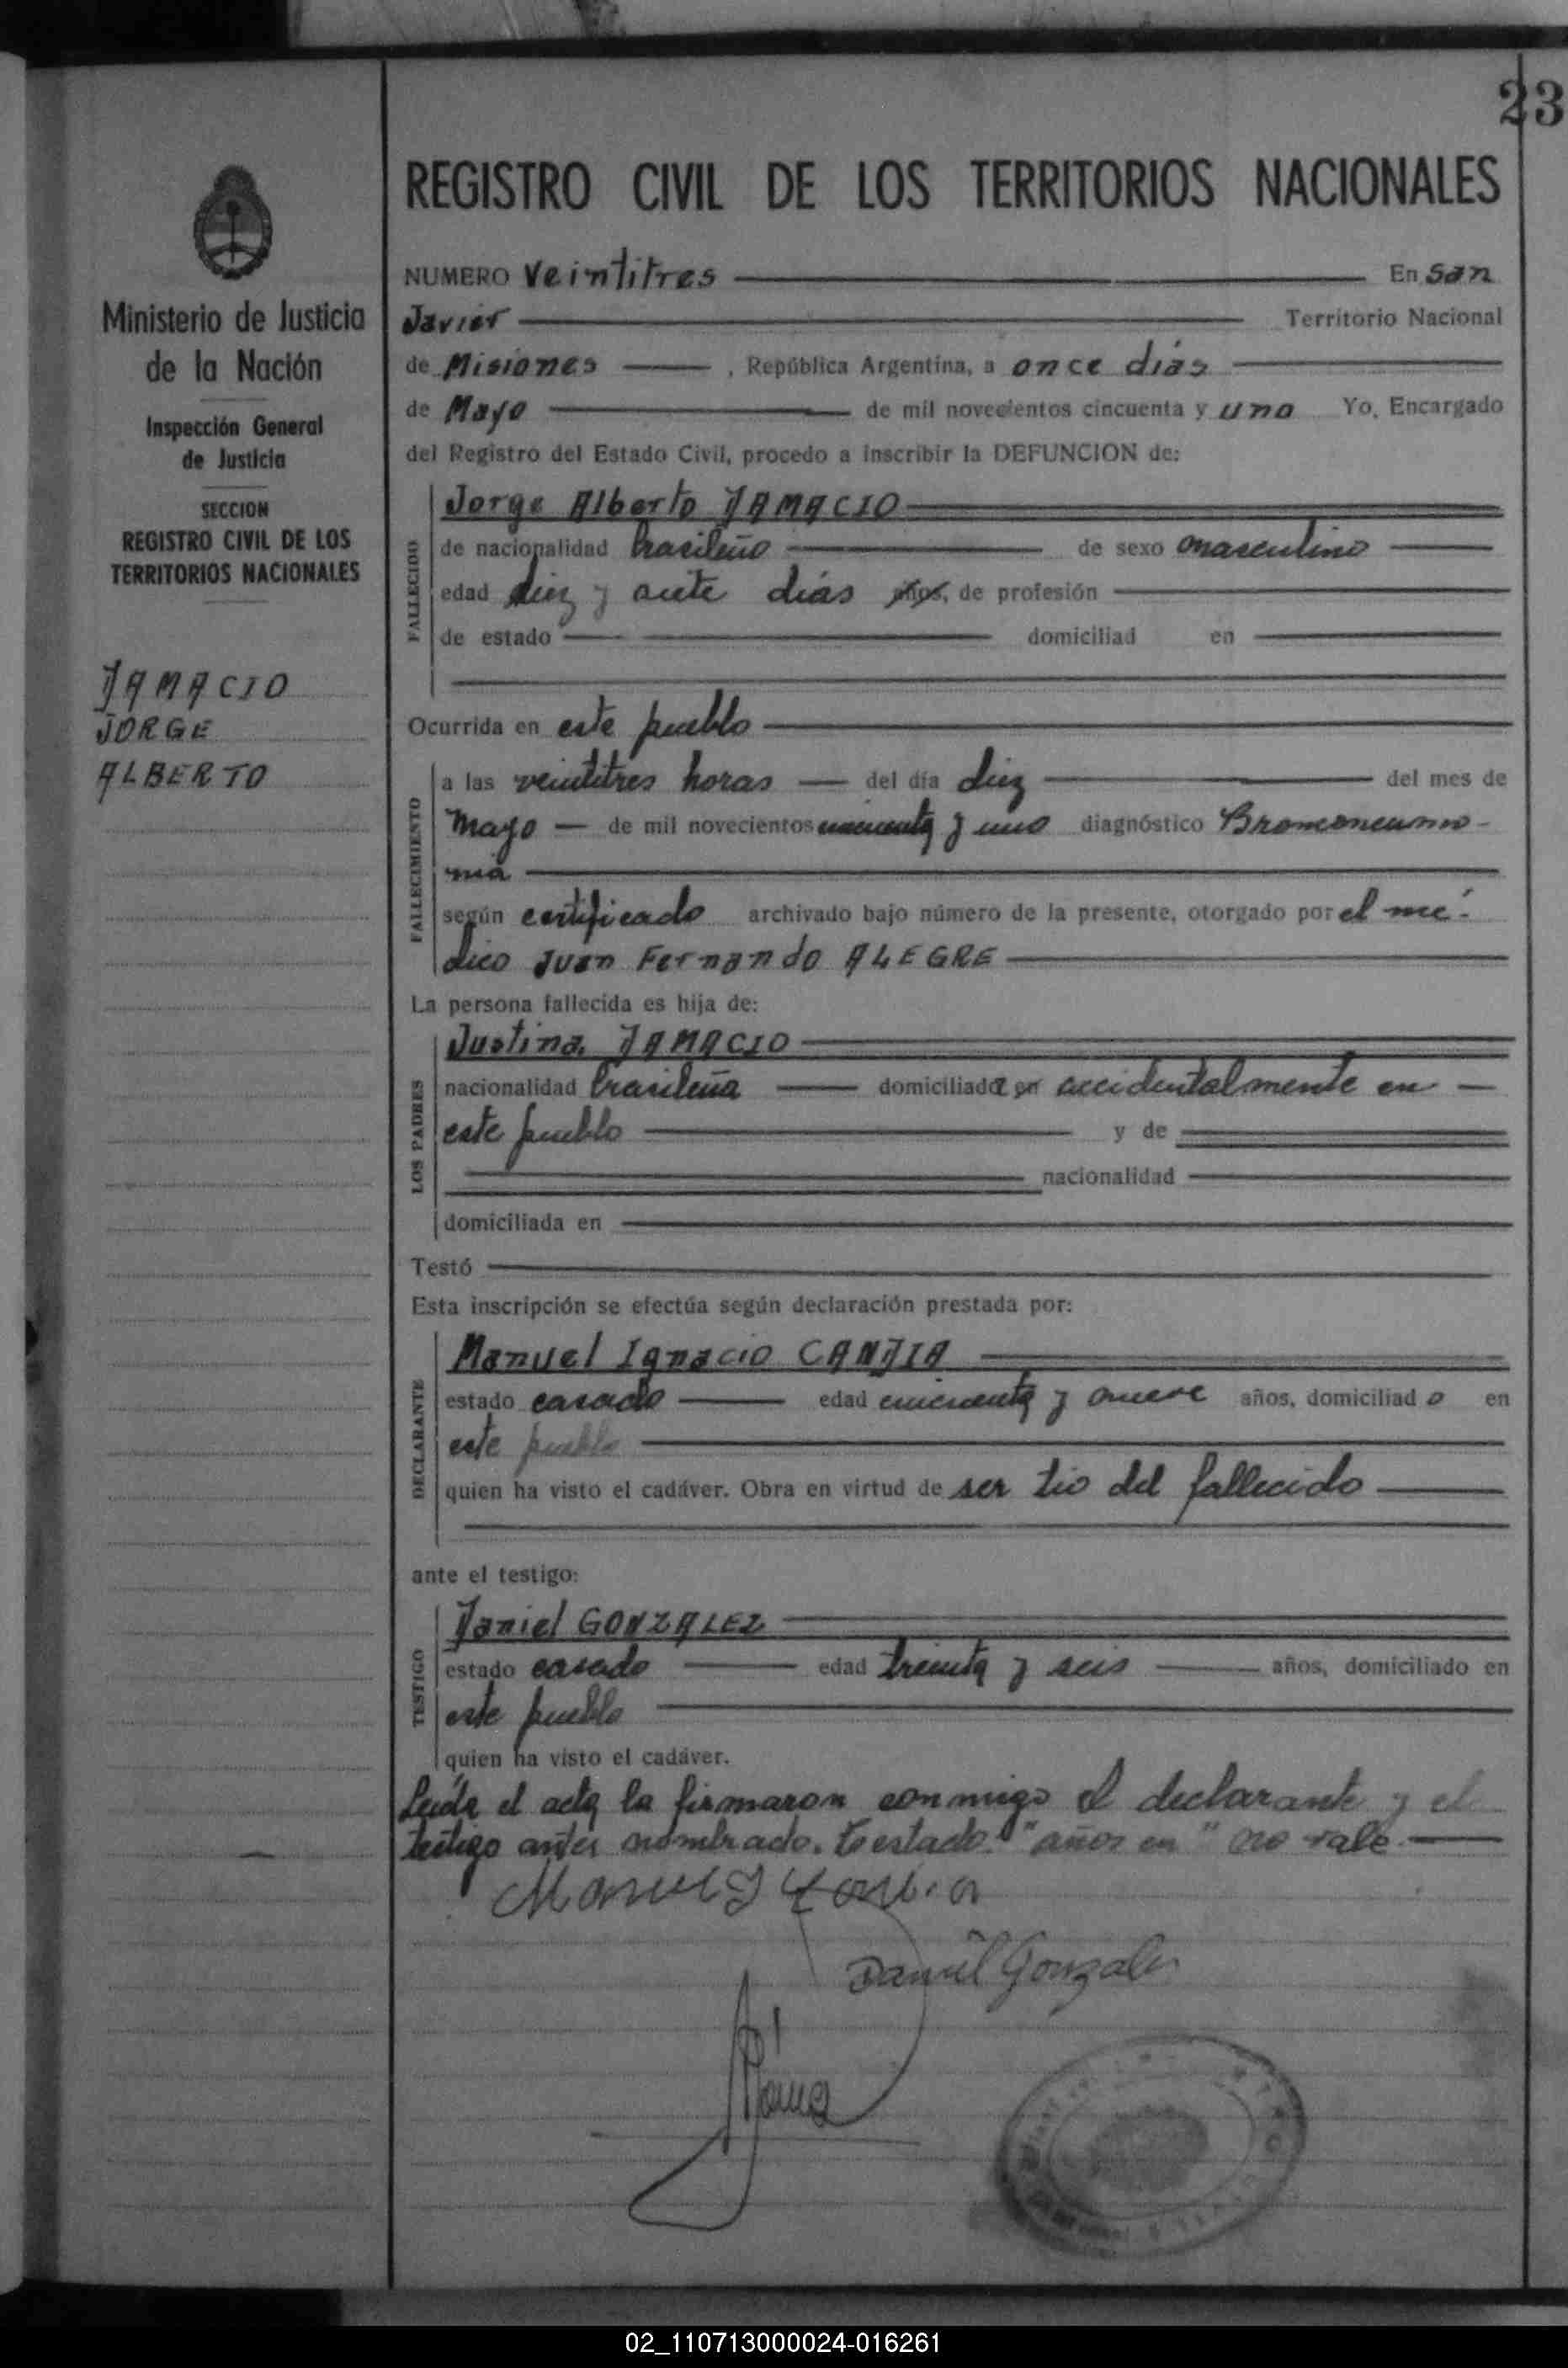 23
Ministerio de Justicia
de la Nación
Inspección General
de Justicia
SECCION
REGISTRO CIVIL DE LOS
TERRITORIOS NACIONALES
DAMACIO
JORGE
ALBERTO
REGISTRO CIVIL DE LOS TERRITORIOS NACIONALES
NUMERO Veintitres En San
Javier Territorio Nacional
de Misiones, República Argentina, a once días
de Mayo de mil novecientos cincuenta y uno Yo, Encargado
del Registro del Estado Civil, procedo a inscribir la DEFUNCION de:
FALLECIDO
Jorge Alberto DAMACIO
de nacionalidad brasileño de sexo masculino
edad diez y siete días años, de profesión
de estado domiciliad en
Ocurrida en este pueblo
FALLECIMIENTO
a las veintitres horas del día diez del mes de
Mayo de mil novecientos cincuenta y uno diagnóstico Bronconeumo-
nia
según certificado archivado bajo número de la presente, otorgado por el mé-
dico Juan Fernando ALEGRE
La persona fallecida es hija de:
LOS PADRES
Justina DAMACIO
nacionalidad brasileña domiciliada en accidentalmente en
este pueblo y de
nacionalidad
domiciliada en
Testó
Esta inscripción se efectúa según declaración prestada por:
DECLARANTE
Manuel Ignacio CANDIA
estado casado edad cincuenta y nueve años, domiciliado en
este pueblo
quien ha visto el cadáver. Obra en virtud de ser tio del fallecido
ante el testigo:
TESTIGO
Daniel GONZALEZ
estado casado edad treinta y seis años, domiciliado en
este pueblo
quien ha visto el cadáver.
Leída el acta la firmaron conmigo el declarante y el
testigo antes nombrado. Testado: "años en" no vale.
Manuel I Candia
Daniel Gonzalez
02_110713000024-016261